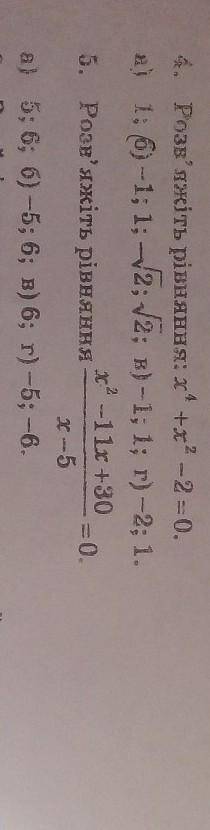 4. Розв'яжіть рівняння: x⁴ + x² − 2 = 0.
а) 1; б) −1; 1; −√2; √2; в) −1; 1; г) −2; 1.
5. Розв'яжіть рівняння (x² − 11x + 30)/(x − 5) = 0.
а) 5; 6; б) −5; 6; в) 6; г) −5; −6.